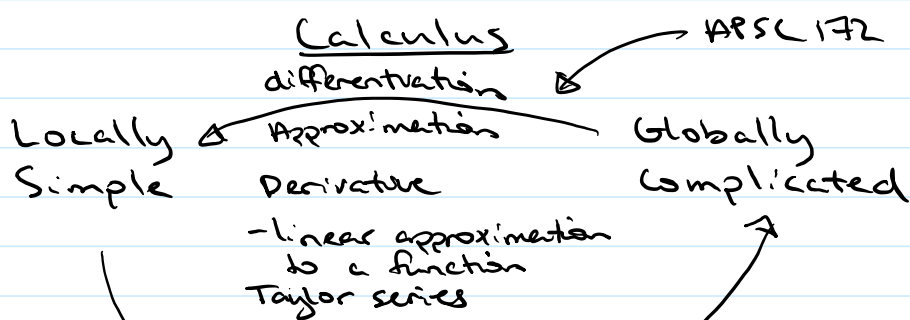 Calculus
APSC 172
differentiation
Locally
Approximation
Globally
Simple
Derivative
Complicated
-linear approximation
to a function
Taylor series